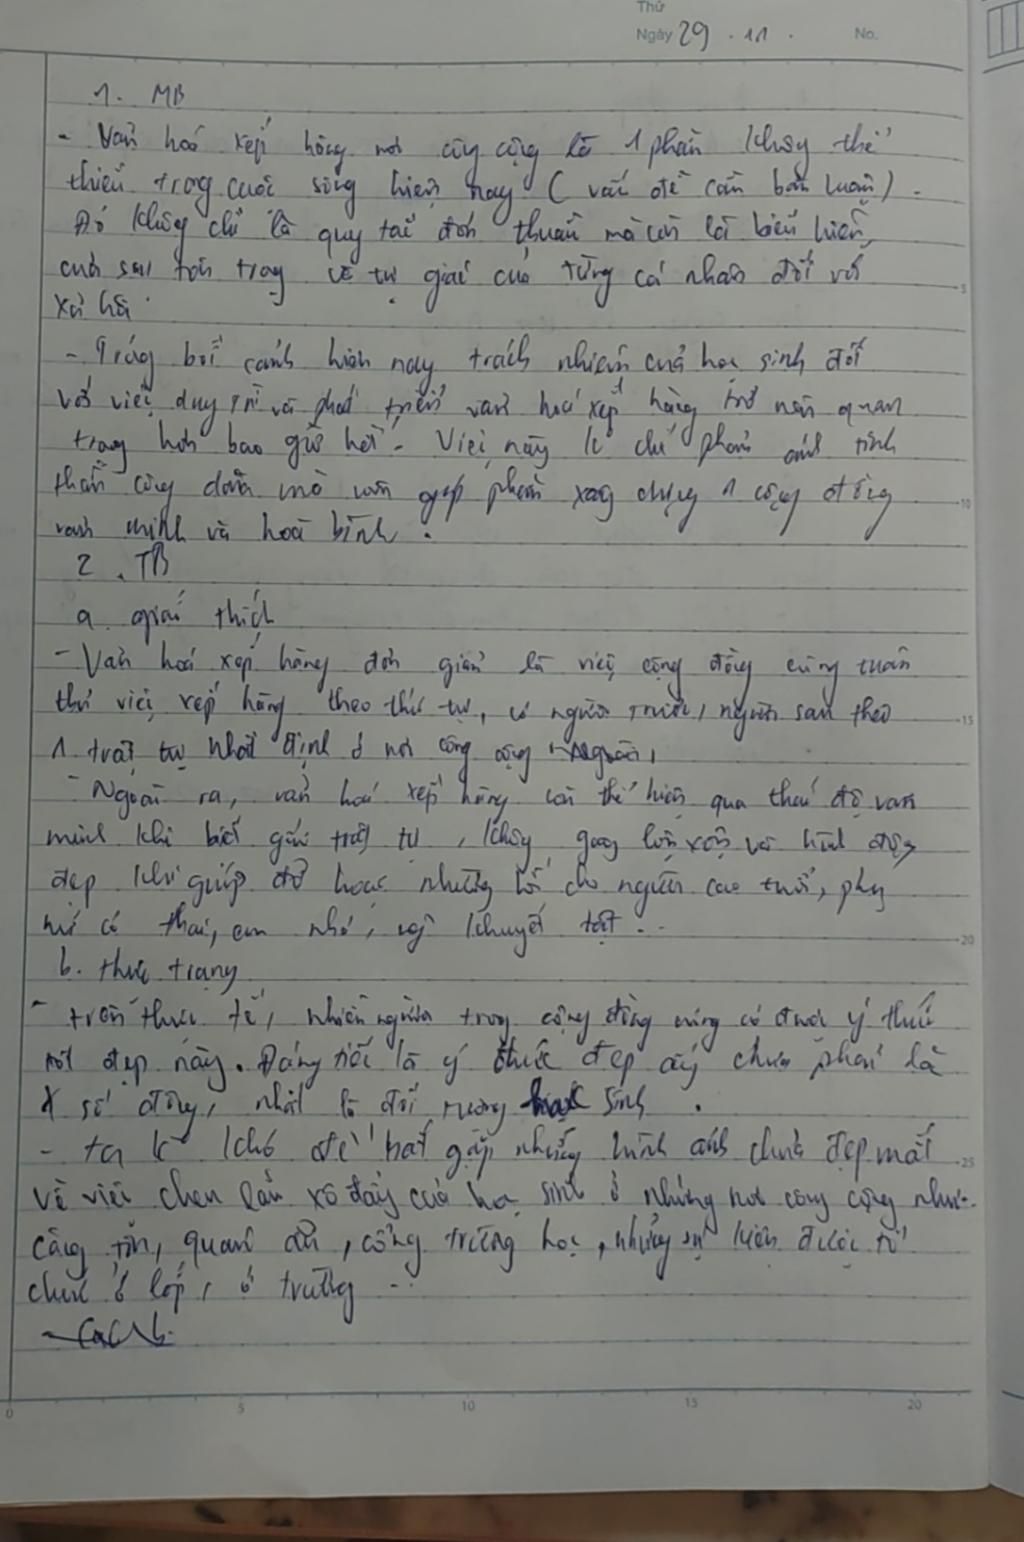 Thứ
Ngày 29 . 11 . No.
1. MB
- Văn hoá xếp hàng nơi công cộng là 1 phần không thể
thiếu trong cuộc sống hiện nay ( vấn đề cần bàn luận ) .
Đó không chỉ là quy tắc đơn thuần mà còn là biểu hiện
của sự tôn trọng và tự giác của từng cá nhân đối với
xã hội .
- Trong bối cảnh hiện nay trách nhiệm của học sinh đối
với việc duy trì và phát triển văn hoá xếp hàng trở nên quan
trọng hơn bao giờ hết . Việc này k chỉ phản ánh tinh
thần công dân mà còn góp phần xây dựng 1 cộng đồng
văn minh và hoà bình .
2 . TB
a. giải thích
- Văn hoá xếp hàng đơn giản là việc cộng đồng cùng tuân
thủ việc xếp hàng theo thứ tự, có người trước, người sau theo
1 trật tự nhất định ở nơi công cộng
- Ngoài ra, văn hoá xếp hàng còn thể hiện qua thái độ văn
minh khi biết giữ trật tự , không gây lộn xộn và hành động
đẹp khi giúp đỡ hoặc nhường lối cho người cao tuổi, phụ
nữ có thai, em nhỏ, khuyết tật ...
b. thực trạng
- trên thực tế, nhiều người trong cộng đồng cũng có được ý thức
tốt đẹp này. Đáng tiếc là ý thức đẹp ấy chưa phải là
số đông, nhất là đối tượng sinh .
- ta k khó để bắt gặp những hình ảnh chưa đẹp mắt
về việc chen lấn xô đẩy của học sinh ở những nơi công cộng như
căng tin, quán ăn, cổng trường học, những sự kiện được tổ
chức ở lớp, ở trường ...
5
10
15
20
25
0 5 10 15 20